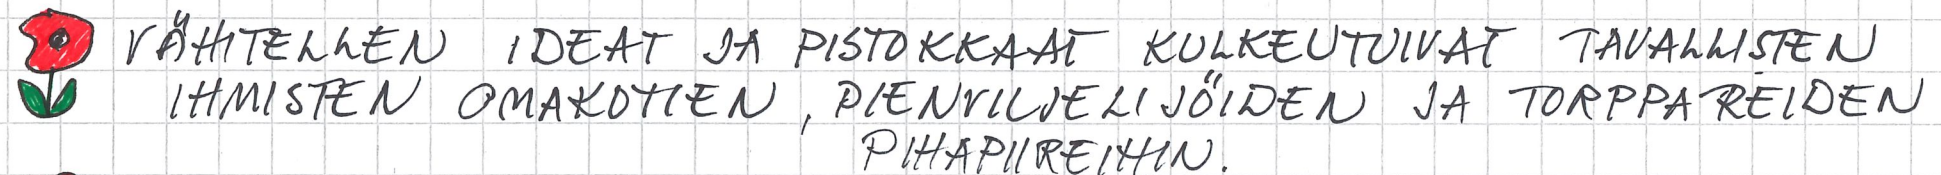 VÄHITELLEN IDEAT JA PISTOKKAAT KULKEUTUIVAT TAVALLISTEN
IHMISTEN OMAKOTIEN, PIENVILJELIJÖIDEN JA TORPPAREIDEN
PIHAPIIREIHIN.